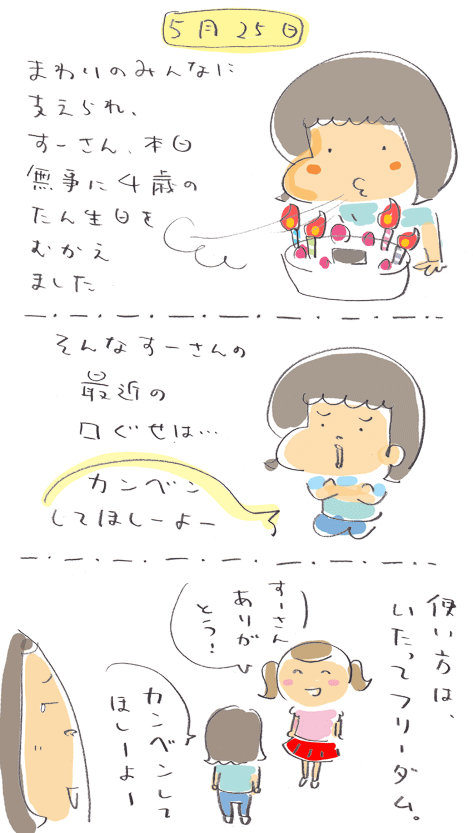 5月25日
まわりのみんなに
支えられ、
すーさん、本日
無事に4歳の
たん生日を
むかえ
ました
そんなすーさんの
最近の
口ぐせは…
カンベン
してほしーよー
使い方は、
いたってフリーダム。
すーさん
ありが
とう!
カンベンして
ほしーよー